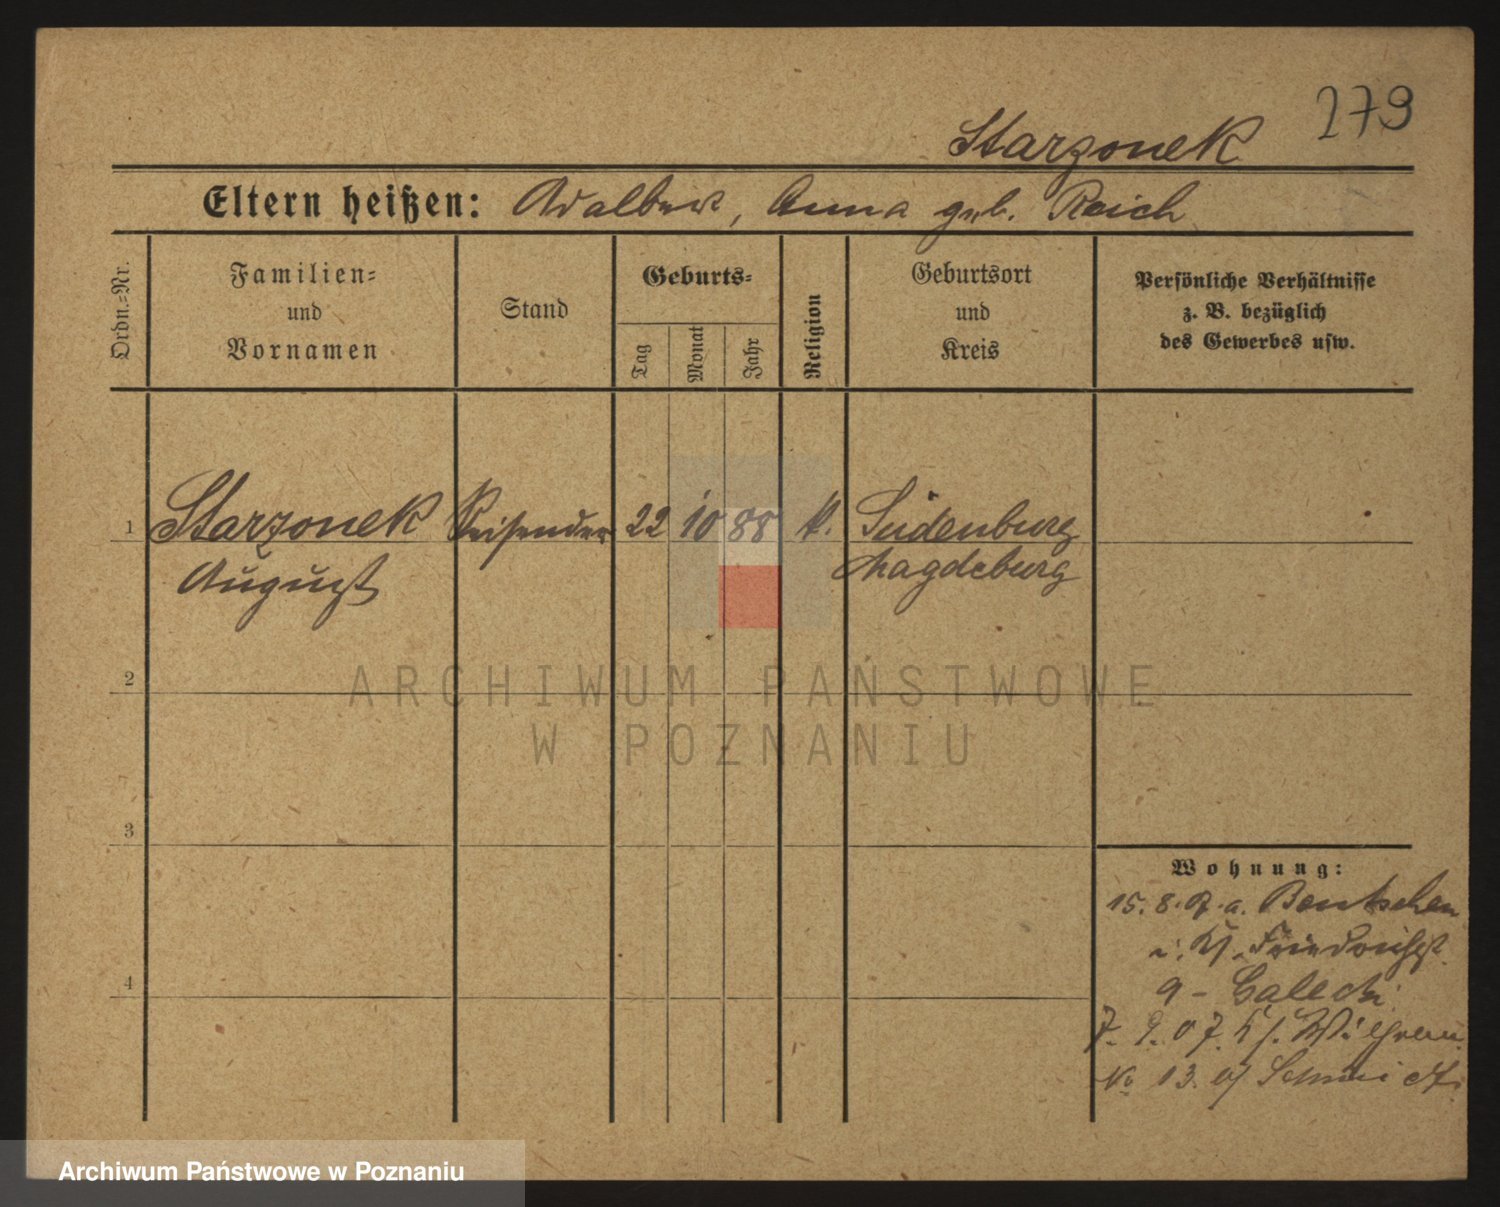 279
Starzonek
Eltern heißen: Adalbert, Anna geb. Reich
Ordn.=Nr.
Familien=
und
Vornamen
Stand
Geburts=
Tag
Monat
Jahr
Religion
Geburtsort
und
Kreis
Persönliche Verhältnisse
z. B. bezüglich
des Gewerbes usw.
1 Starzonek Reisender 22 10 88 k. Sudenburg
August Magdeburg
2
3
4
Wohnung:
15. 8. 07. a. Bentschen
Friedrichst.
9 - Galecki
7. 9. 07.
No 13. b/ Schmidt
ARCHIWUM PAŃSTWOWE
W POZNANIU
Archiwum Państwowe w Poznaniu